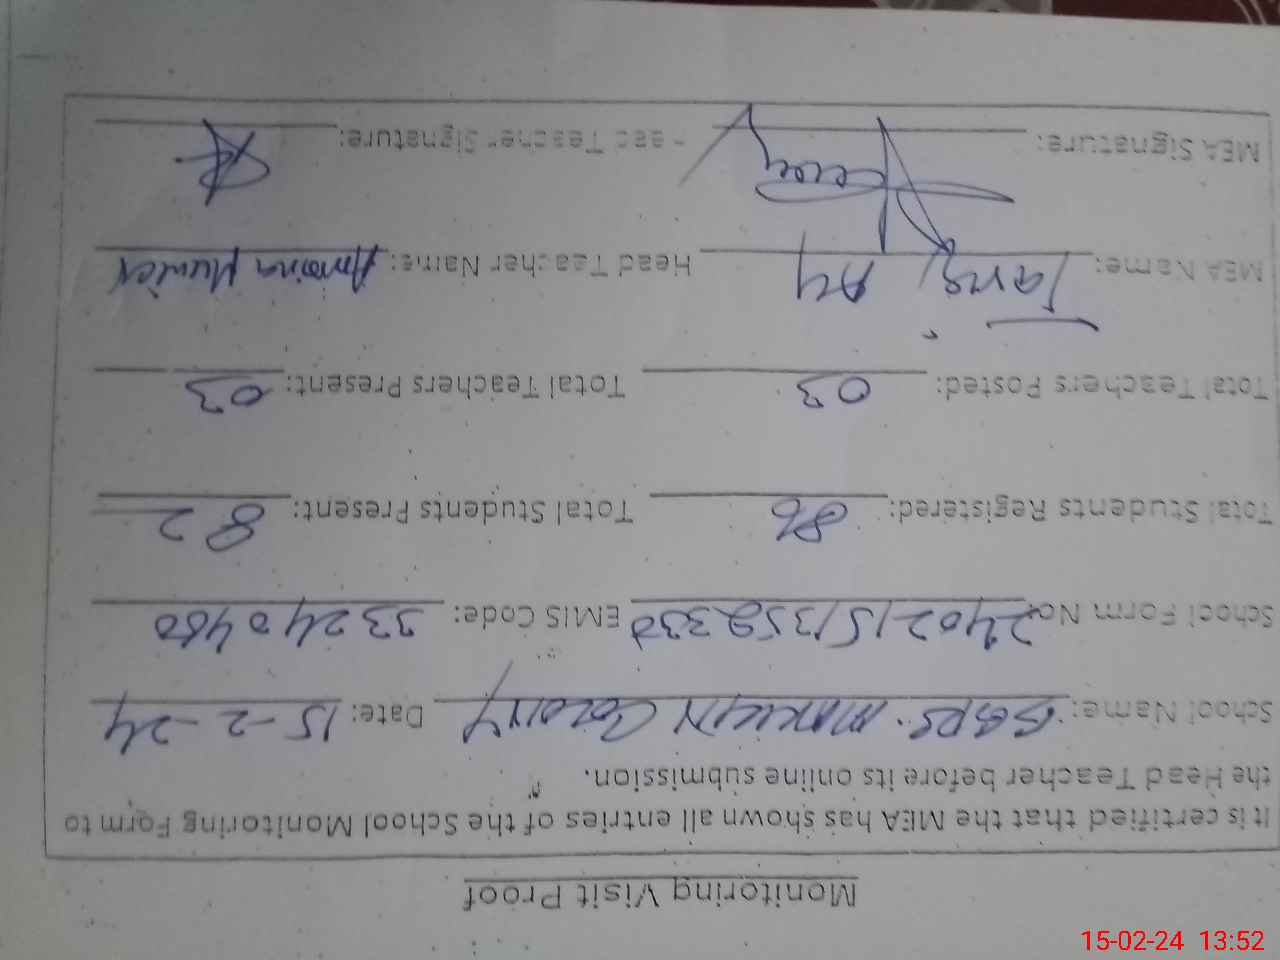 Monitoring Visit Proof
It is certified that the MEA has shown all entries of the School Monitoring Form to
the Head Teacher before its online submission.
School Name: Colony Date: 15-2-24
School Form No. EMIS Code: 33240480
Total Students Registered: 86 Total Students Present: 82
Total Teachers Posted: 03 Total Teachers Present: 03
MEA Name: Tariq Aly Head Teacher Name:
MEA Signature: Head Teacher Signature:
15-02-24 13:52